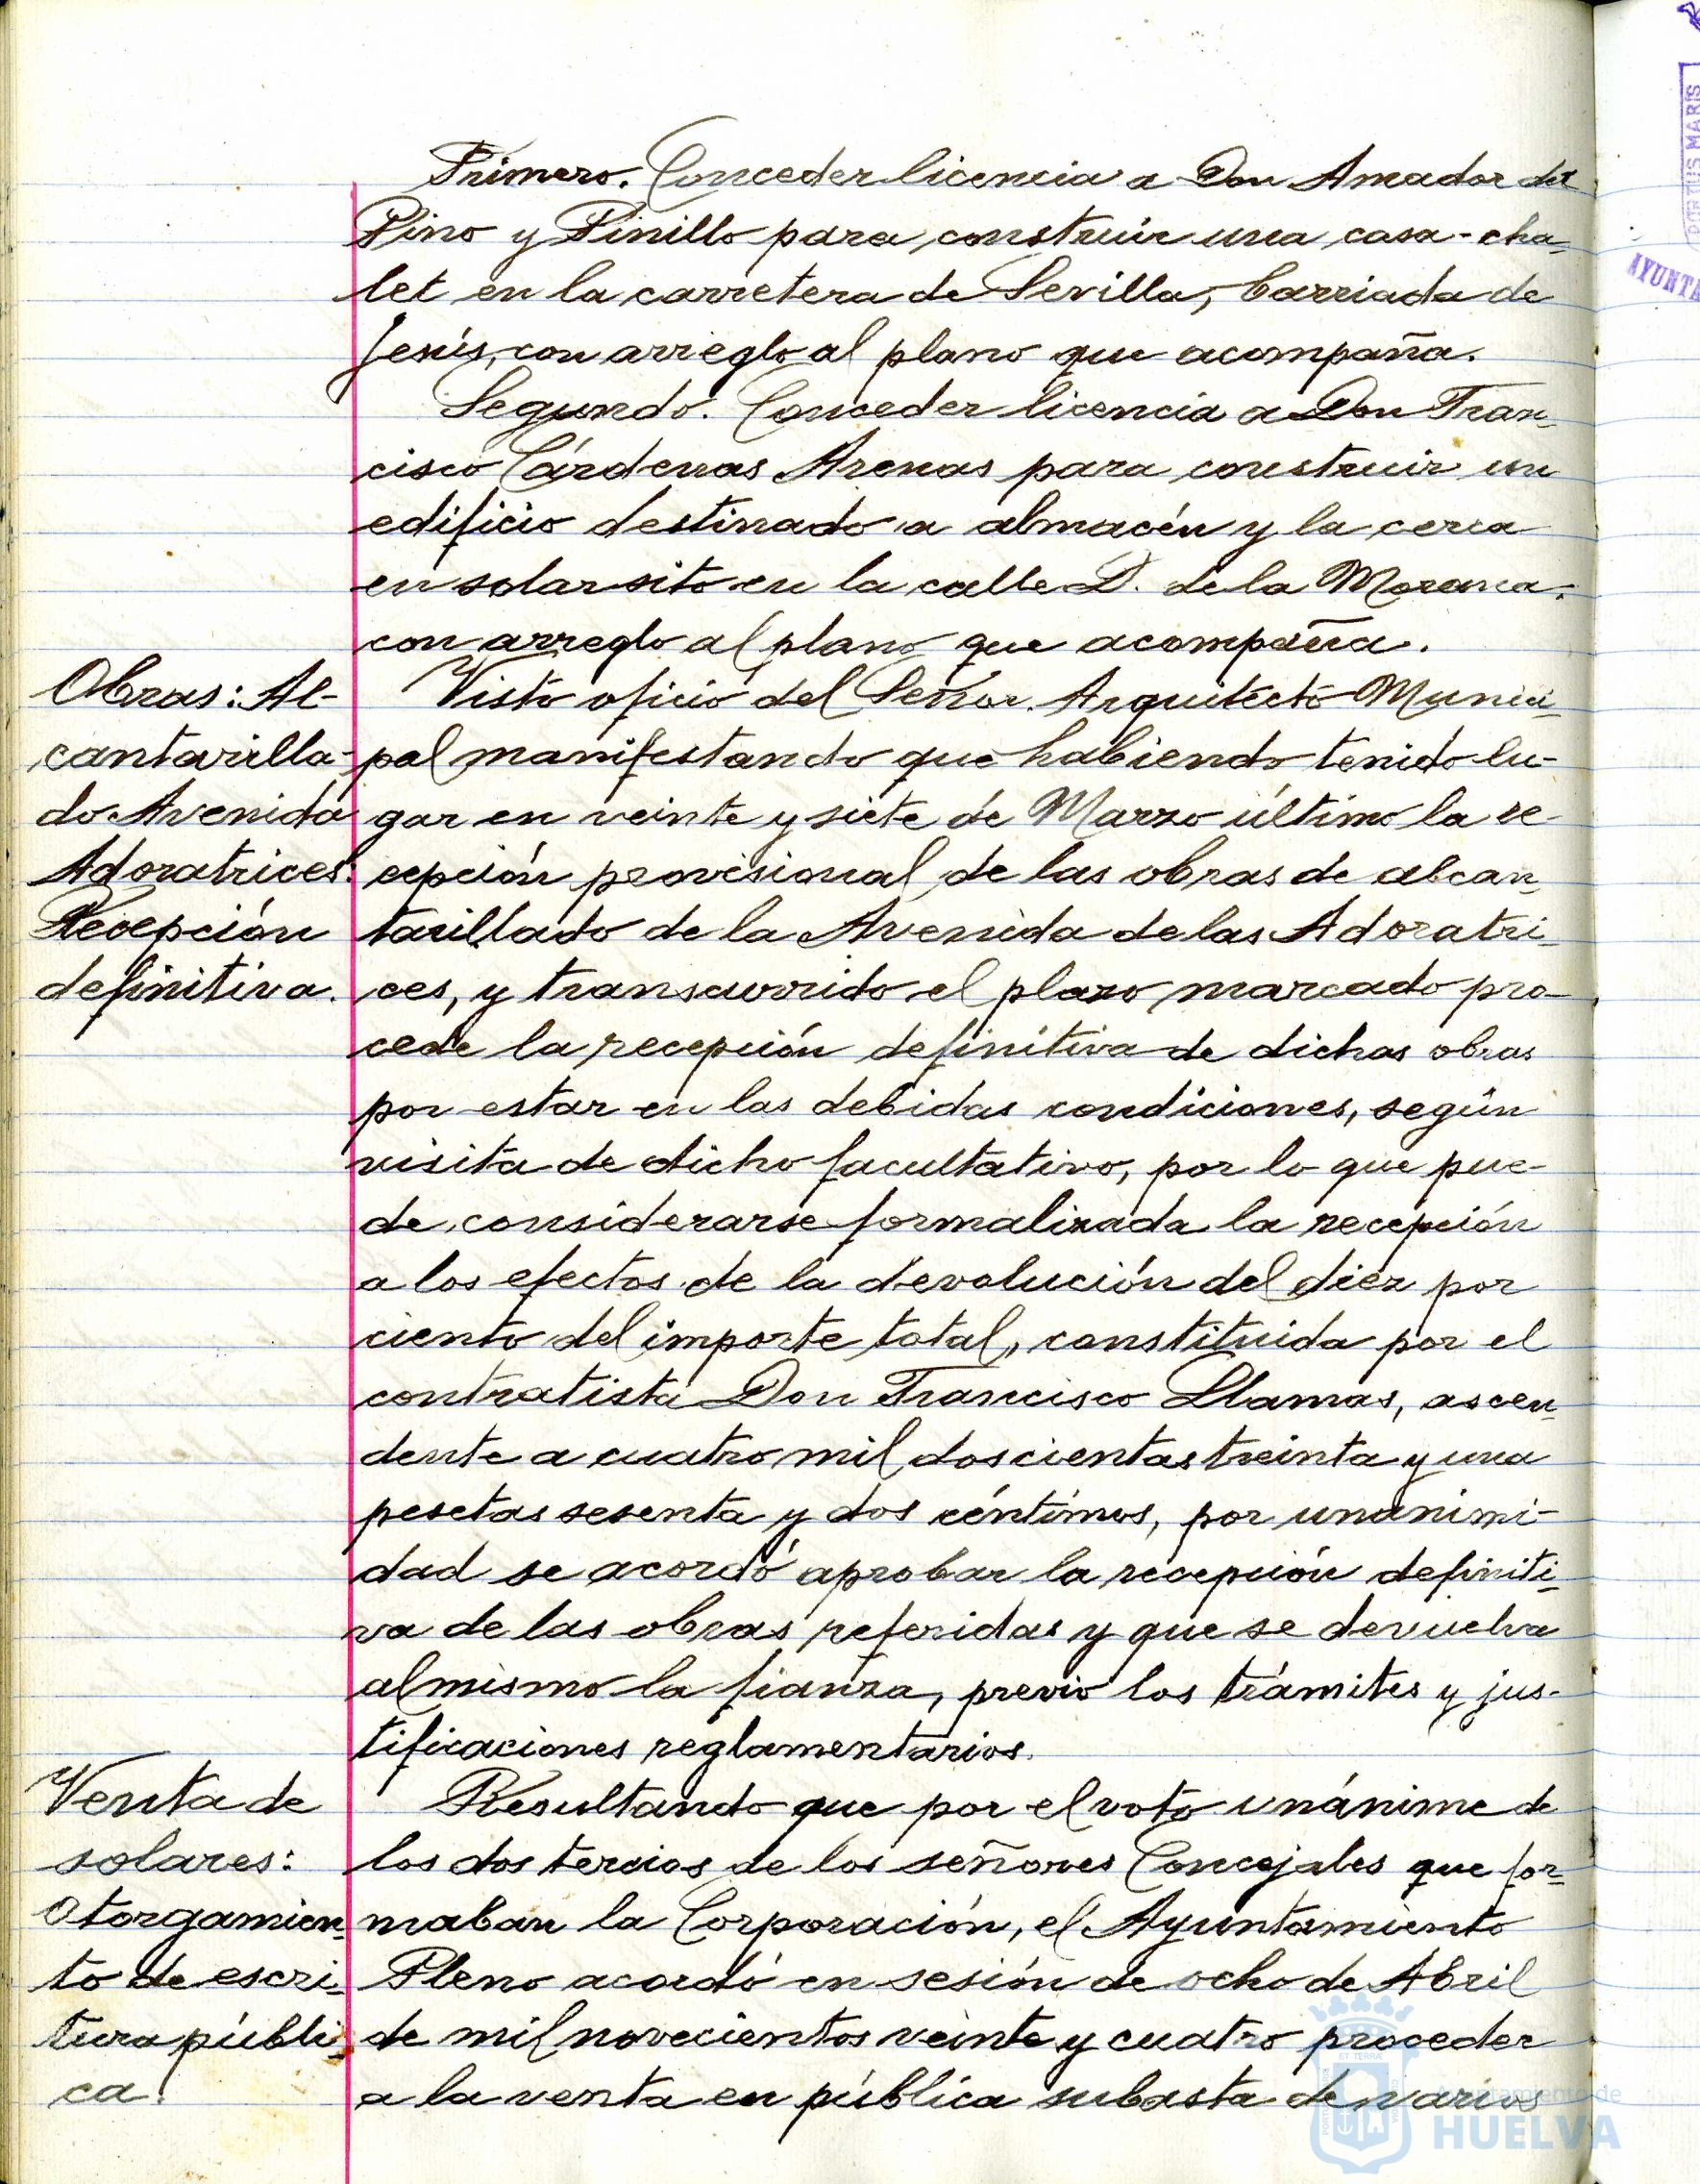 Primero. Conceder licencia a Don Amador del
Pino y Pinillo para construir una casa-cha-
let en la carretera de Sevilla, barriada de
Jesús, con arreglo al plano que acompaña.
Segundo. Conceder licencia a Don Fran-
cisco Cárdenas Arenas para construir un
edificio destinado a almacén y la cerca
en solar sito en la calle D. de la Morena.
con arreglo al plano que acompaña.
Obras: Al-
cantarilla-
do Avenida
Adoratrices:
Recepción
definitiva.
Visto oficio del Señor Arquitecto Munici-
pal manifestando que habiendo tenido lu-
gar en veinte y siete de Marzo último la re-
cepción provisional de las obras de alcan-
tarillado de la Avenida de las Adoratri-
ces, y transcurrido el plazo marcado pro-
cede la recepción definitiva de dichas obras
por estar en las debidas condiciones, según
visita de dicho facultativo, por lo que pue-
de considerarse formalizada la recepción
a los efectos de la devolución del diez por
ciento del importe total, constituida por el
contratista Don Francisco Llamas, ascen-
dente a cuatro mil doscientas treinta y una
pesetas sesenta y dos céntimos, por unanimi-
dad se acordó aprobar la recepción definiti-
va de las obras referidas y que se devuelva
al mismo la fianza, previo los trámites y jus-
tificaciones reglamentarios.
Venta de
solares:
Otorgamien-
to de escri-
tura públi-
ca.
Resultando que por el voto unánime de
los dos tercios de los señores Concejales que for-
maban la Corporación, el Ayuntamiento
Pleno acordó en sesión de ocho de Abril
de mil novecientos veinte y cuatro proceder
a la venta en pública subasta de varios
PORTUS MARIS
AYUNTA
Ayuntamiento de
HUELVA